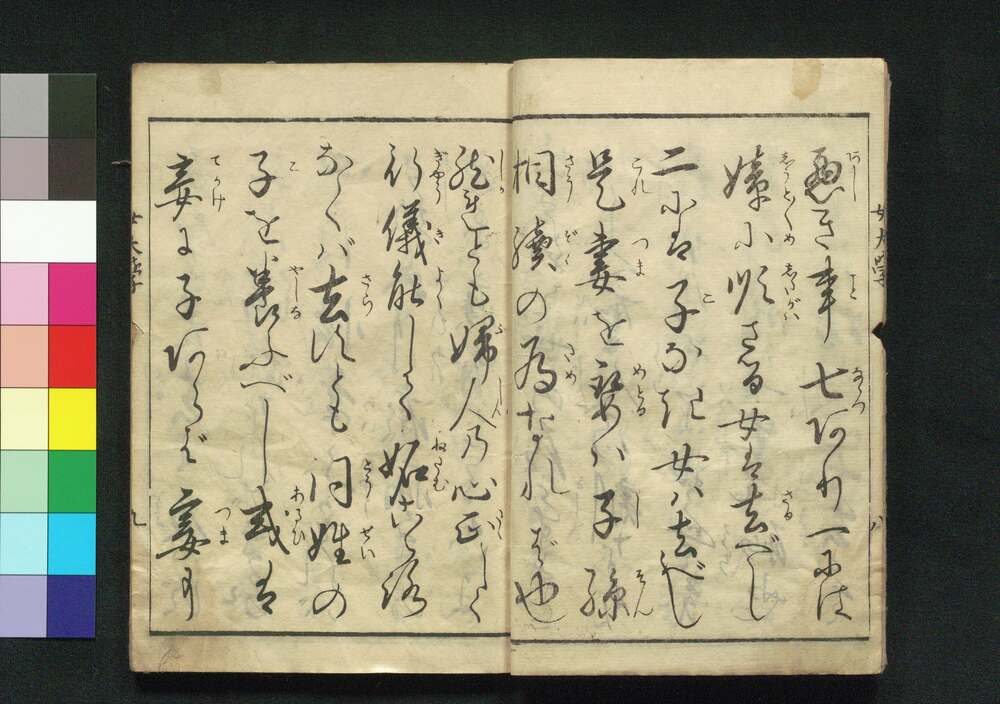 悪き事七あり一には
嫜に順ざる女は去べし
二には子なき女は去べし
是妻を娶は子孫
相続の為なれば也
然れども婦人の心正しく
行儀能して妬心なくば
去ずとも同姓の
子を養ふべし或は
妾に子あらば妻に
女大学
八
女大学
九